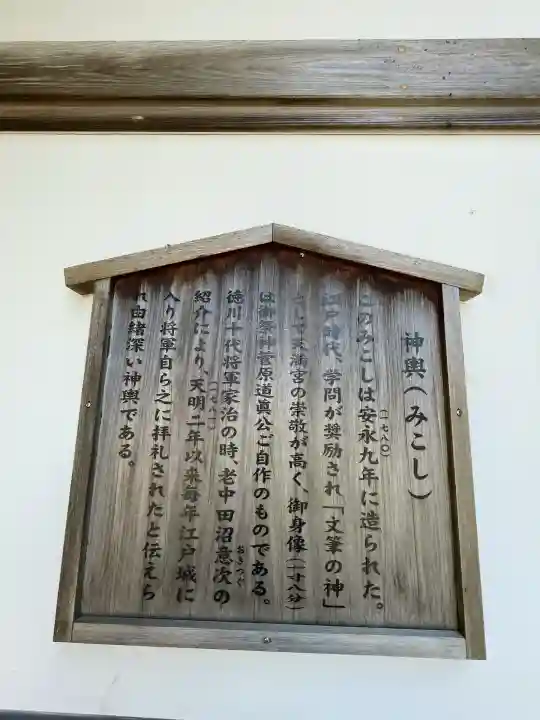 神輿（みこし）
このみこしは安永九年に造られた。
（一七八〇）
江戸時代、学問が奨励され「文筆の神」
として天満宮の崇敬が高く、御身像（一寸八分）
は御祭神菅原道真公ご自作のものである。
徳川十代将軍家治の時、老中田沼意次の
おきつぐ
紹介により、天明一年以来毎年江戸城に
（一七八一）
入り将軍自らこに拝礼されたと伝えら
れ由緒深い神輿である。